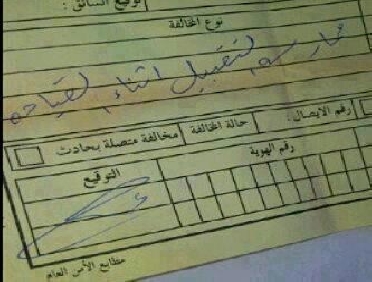 توقيع السائق :
نوع المخالفة
ممارسه لتقبيل اثناء لقياده
رقم الايصال:
حالة المخالفة
مخالفة متصلة بحادث
رقم الهوية
التوقيع
مطابع الأمن العام